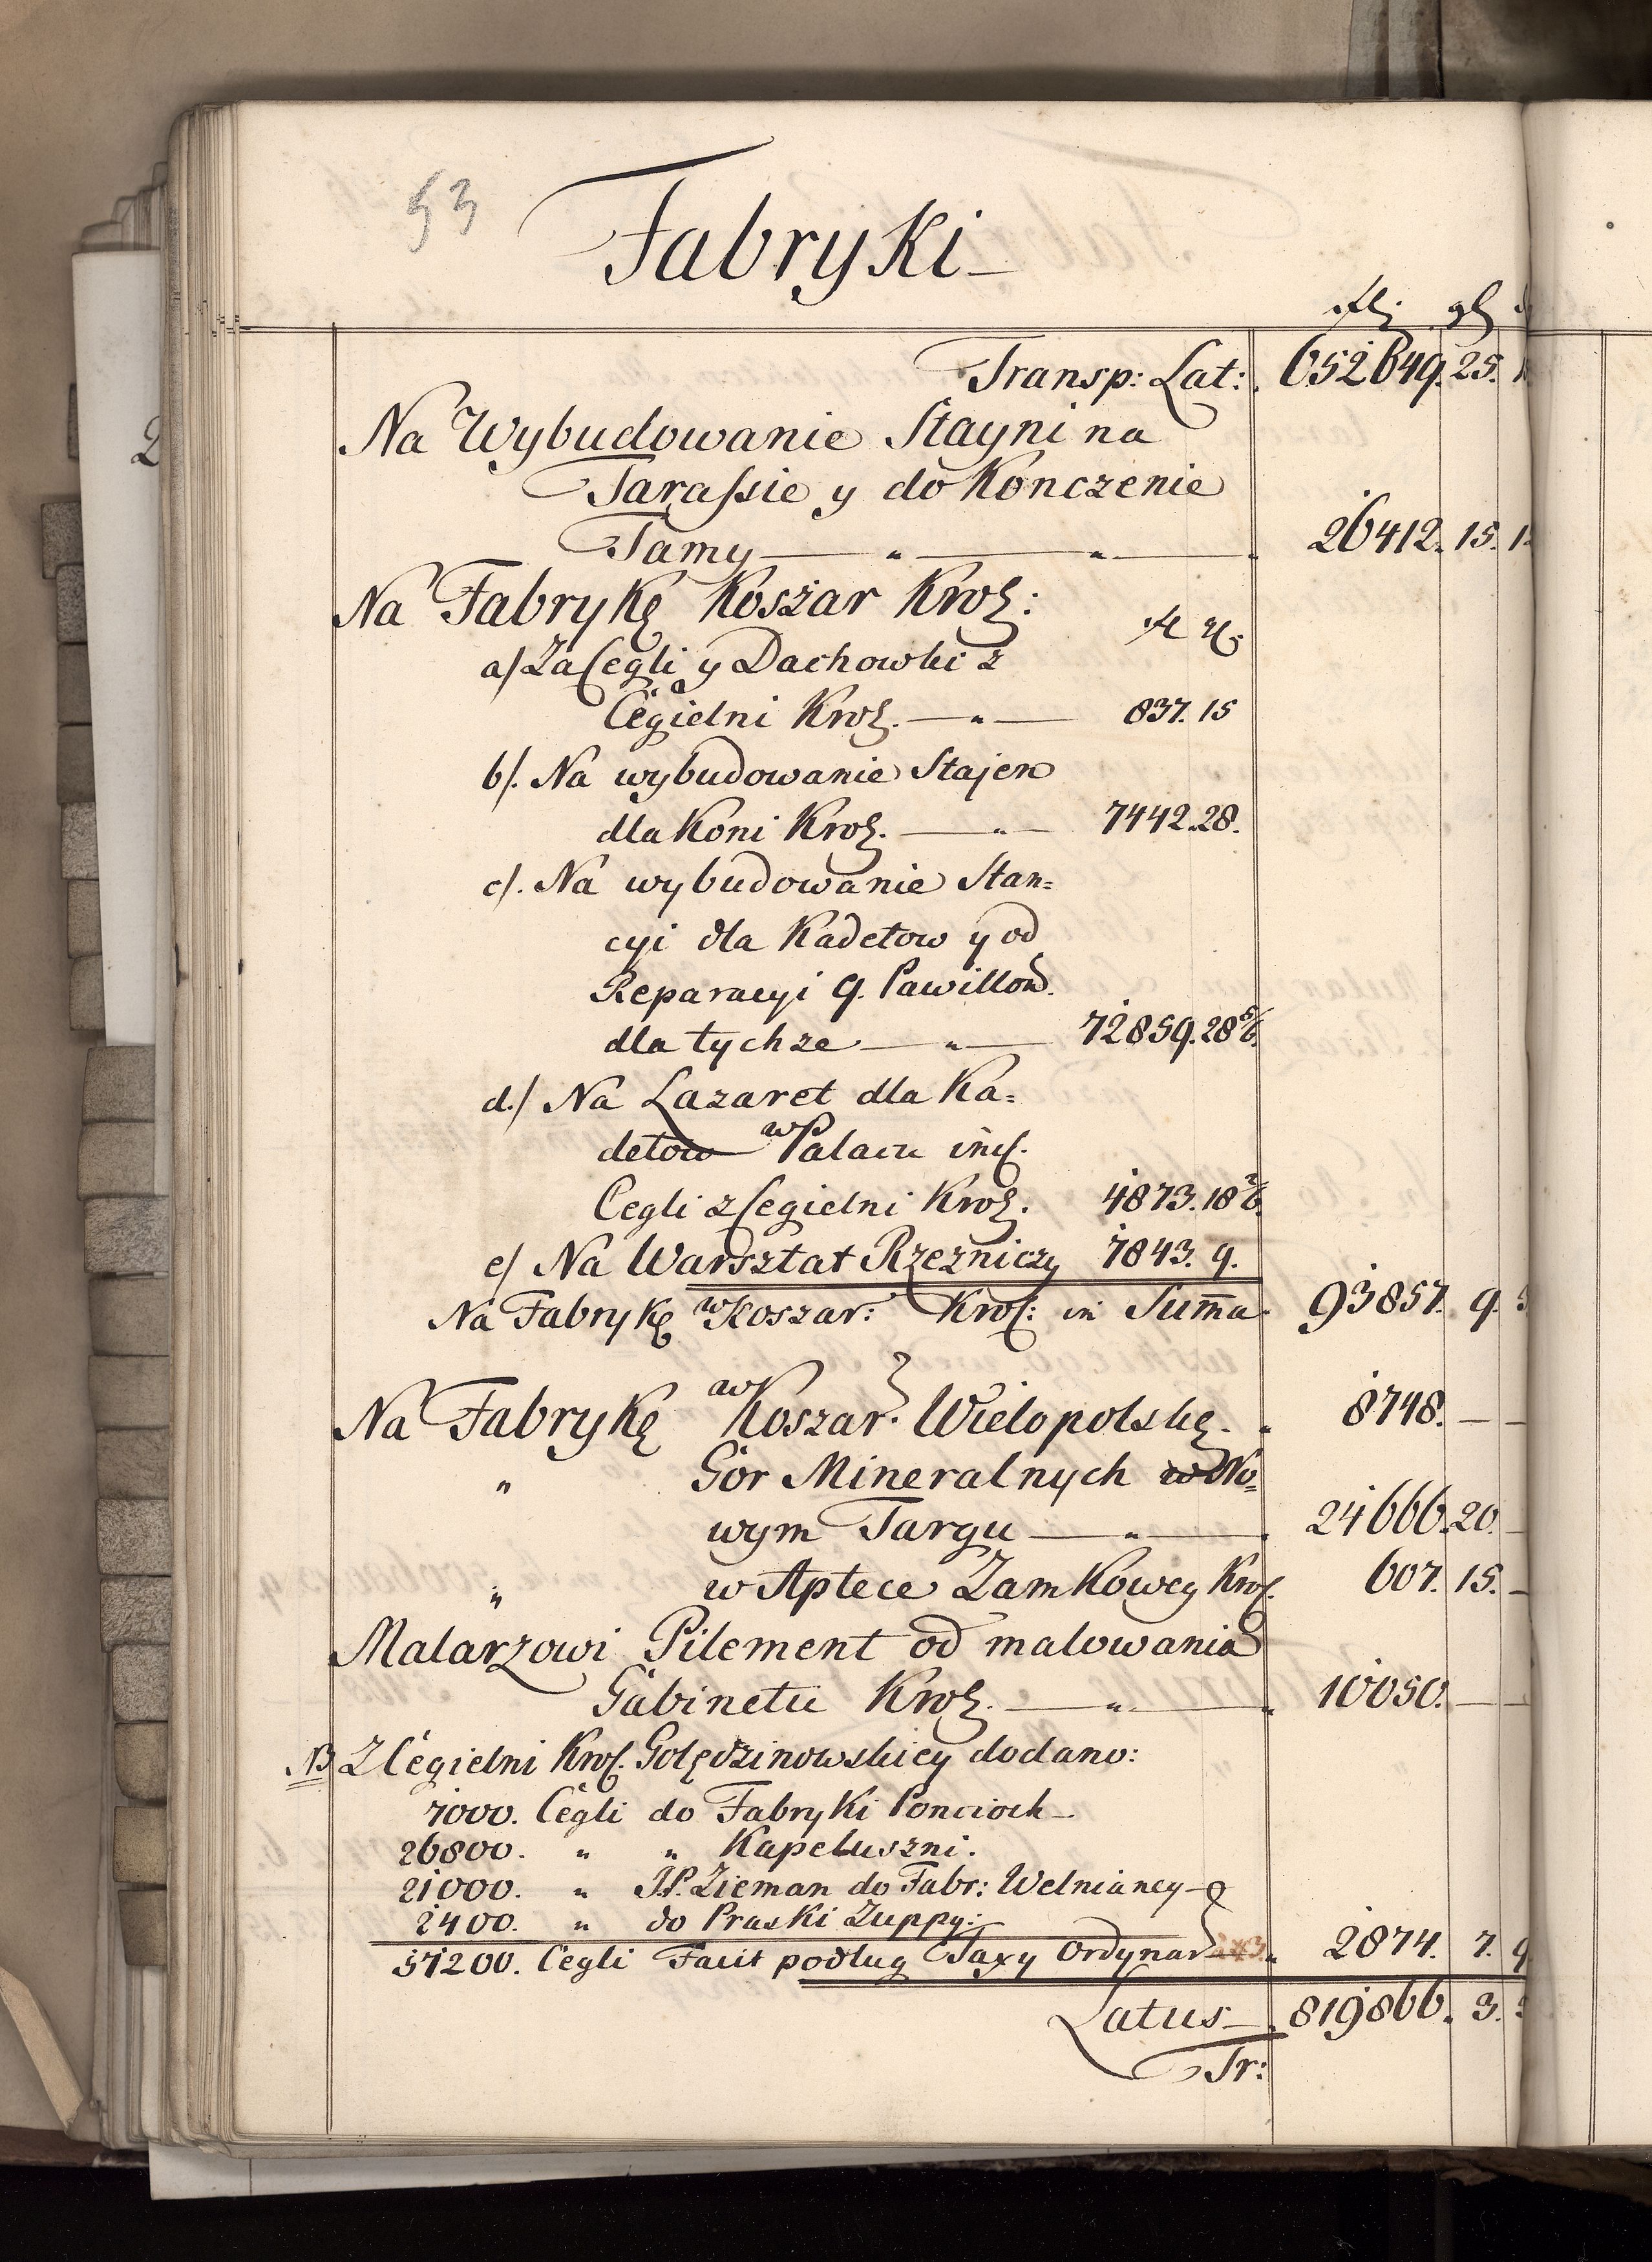 53
Fabryki
fl: gl
Transp: Lat: 652649. 25.
Na Wybudowanie Stayni na
Tarassie y do Konczenie
Tamy — „ — „ — 26412. 15. 1
Na Fabrykę Koszar Krol:
a/ Za Cegli y Dachowki z
Cegielni Krol. — „ — 837. 15
b/. Na wybudowanie Stajen
dla Koni Krol. — „ — 7442. 28.
c/. Na wybudowanie Stan=
cyi dla Kadetow y od
Reparacyi 9. Pawillow.
dla tychze — „ — 72859. 28 5/6.
d./ Na Lazaret dla Ka=
detow w Palacu incl.
Cegli z Cegielni Krol. 4873. 18 2/6.
e/ Na Warsztat Rzezniczy 7843. 9.
Na Fabrykę w Koszar: Krol: in Suma 93857. 9. 3
Na Fabrykę w Koszar. Wielopolskę. 8748. — —
„ Gor Mineralnych w No=
wym Targu — „ — 24666. 20. —
„ w Aptece Zamkowey Krol. 607. 15. —
Malarzowi Pilement od malowania
Gabinetu Krol. — „ — 10050. — —
NB Z Cegielni Krol. Golędzinowskiey dodano:
7000. Cegli do Fabryki Ponczoch —
26800. „ „ Kapeluszni.
21000. „ J.P. Zieman do Fabr: Welnianey —
2400. „ do Praski Zuppy:
57200. Cegli Facit podlug Taxy Ordynar 2874. 7. 9
Latus — 819866. 3. 3
Tr: